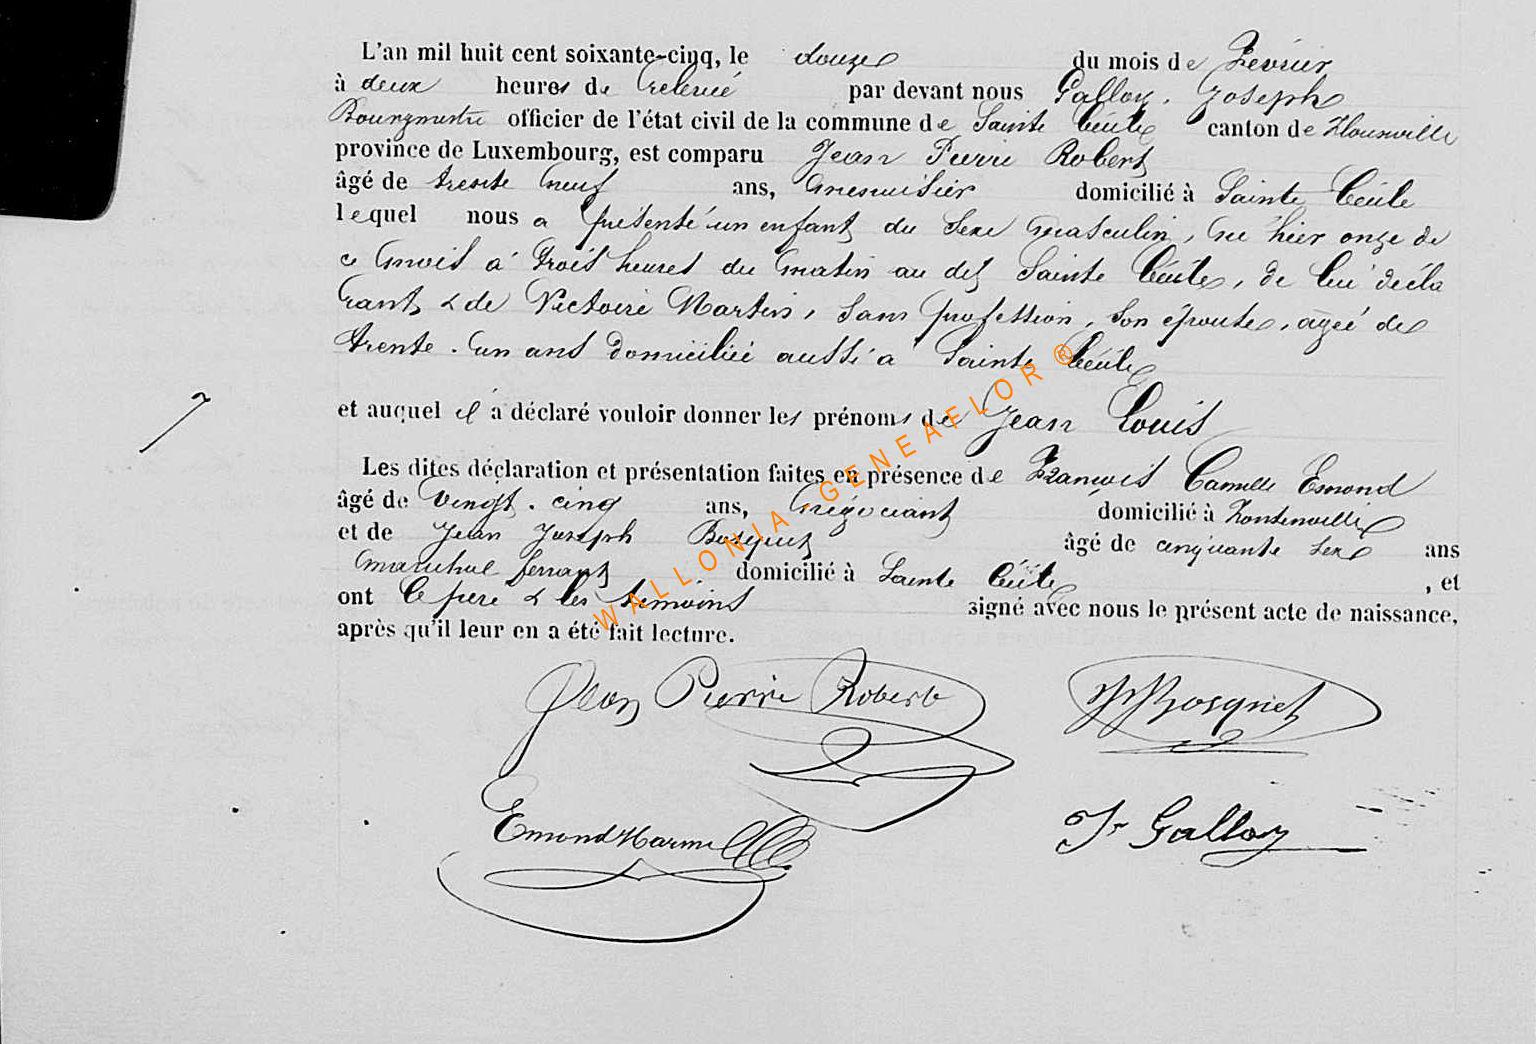 L'an mil huit cent soixante-cinq, le douze du mois de Février
à deux heures de relevée par devant nous Galloy, Joseph
Bourgmestre officier de l'état civil de la commune de Sainte Cécile canton de Florenville
province de Luxembourg, est comparu Jean Pierre Robert
âgé de trente neuf ans, menuisier domicilié à Sainte Cécile
lequel nous a présenté un enfant du sexe masculin, né hier onze de
ce mois à trois heures du matin au dit Sainte Cécile, de lui décla
rant & de Victoire Martin, sans profession, son épouse, agée de
trente-un ans domiciliée aussi a Sainte Cécile
et auquel il a déclaré vouloir donner les prénoms de Jean Louis
Les dites déclaration et présentation faites en présence de François Camille Emond
âgé de vingt-cinq ans, négociant domicilié à Fontenoille
et de Jean Joseph Bosquet âgé de cinquante sexe ans
marechal ferrant domicilié à Sainte Cécile, et
ont le père & les témoins signé avec nous le présent acte de naissance,
après qu'il leur en a été fait lecture.
Jean Pierre Robert
JJ Bosquet
Emond
Js Galloy
WALLONIA-GENEAFLOR®